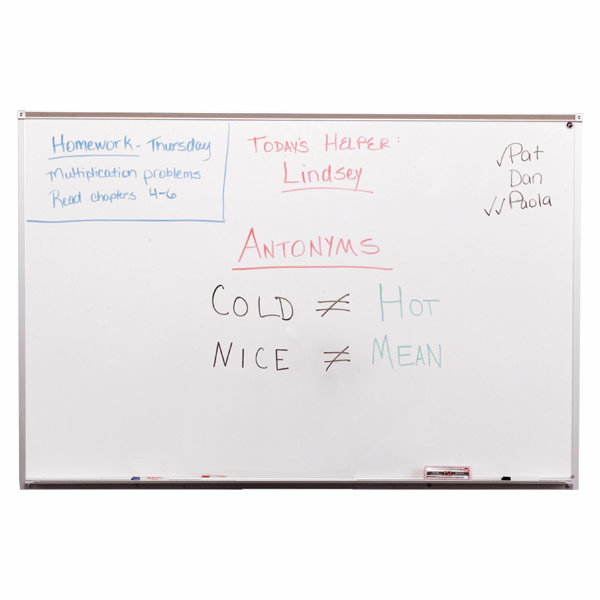 Homework - Thursday
Multiplication problems
Read chapters 4-6
TODAY'S HELPER:
Lindsey
✓Pat
Dan
✓✓Paola
ANTONYMS
COLD ≠ HOT
NICE ≠ MEAN